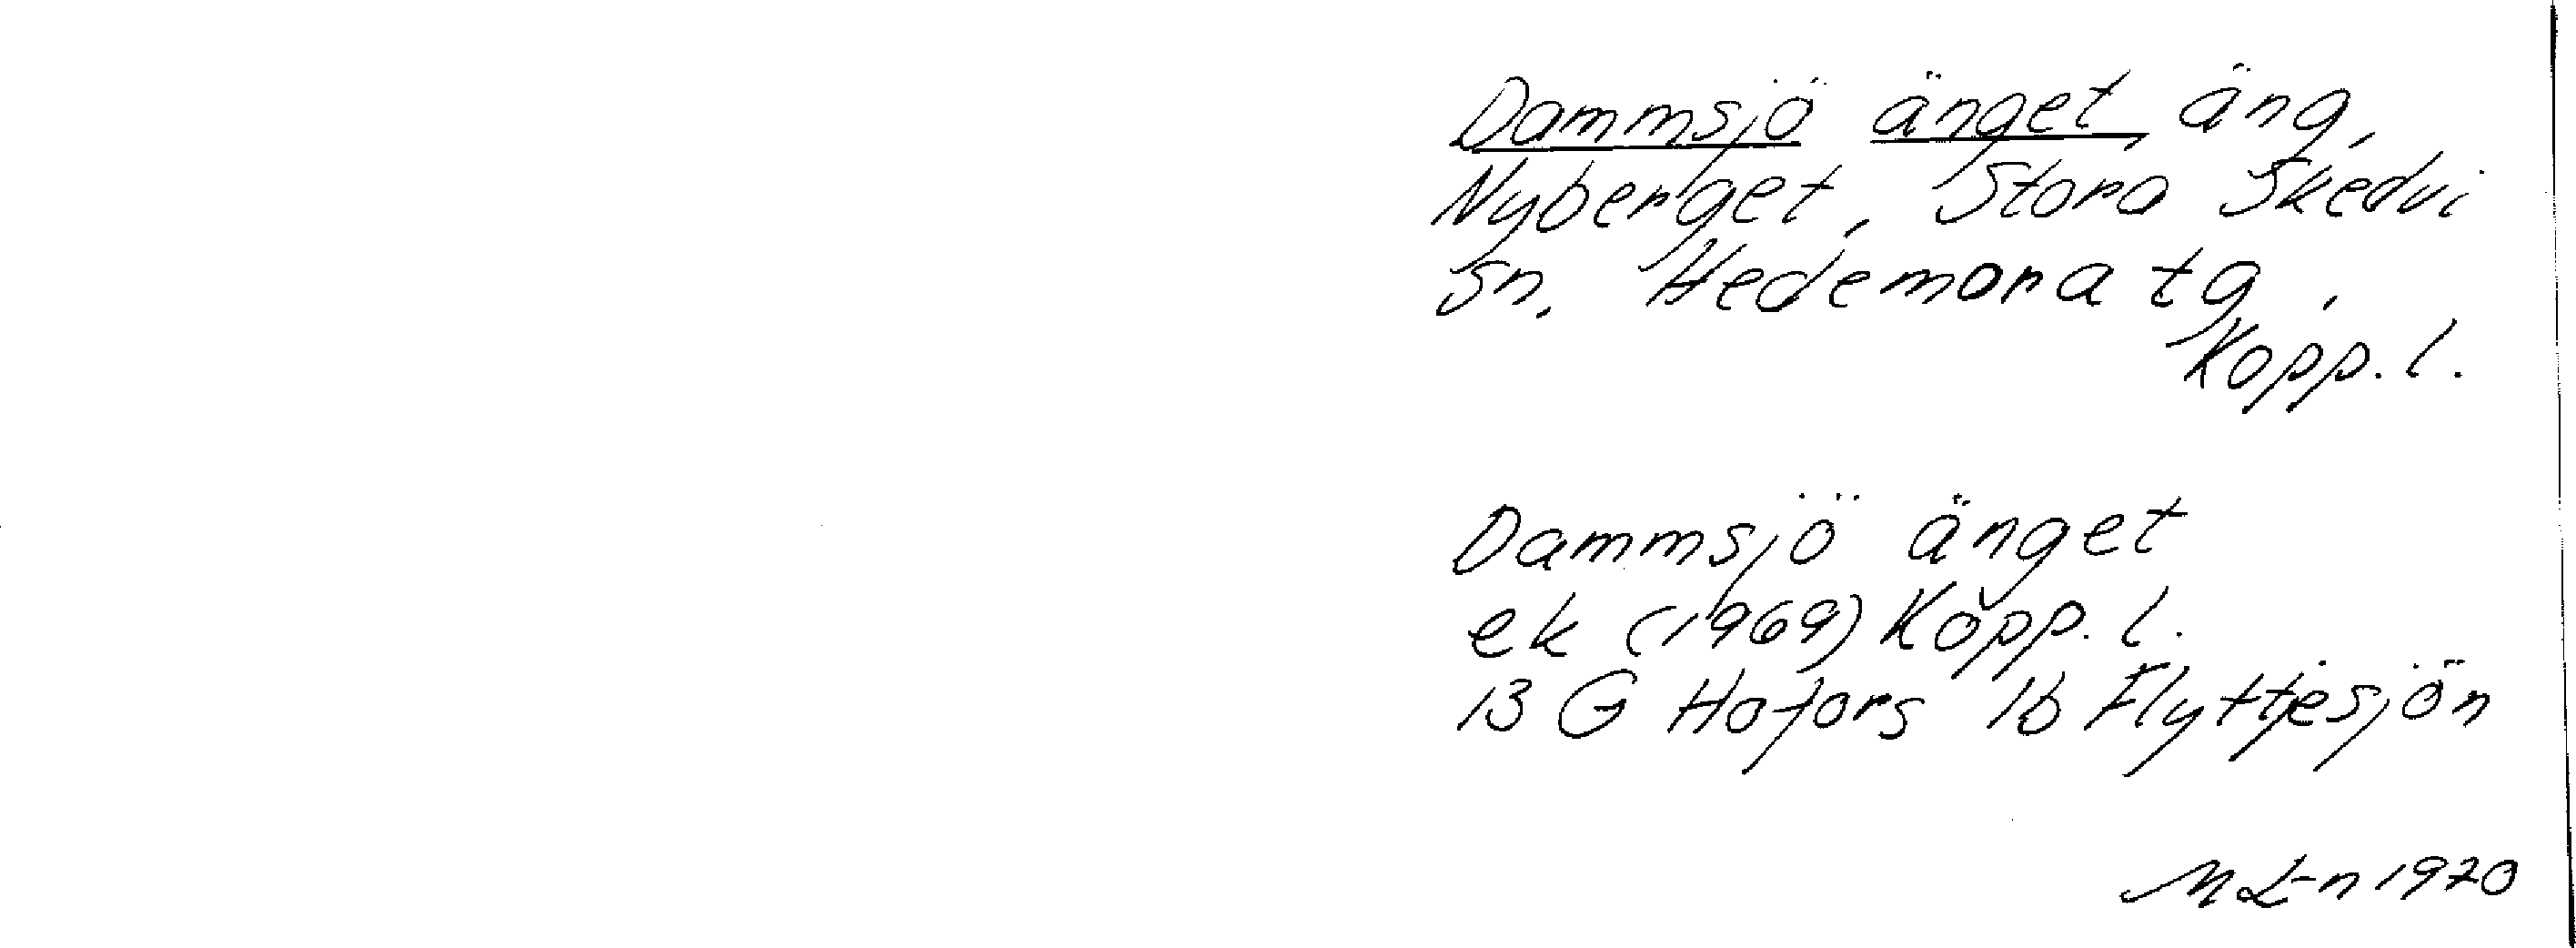 Dammsjö änget, äng,
Nyberget, Stora Skedvi
sn. Hedemora tg,
Kopp. l.
Dammsjö änget
ek (1969) Kopp. l.
13 G Hofors 1b Flyttjesjön
M L-n 1970